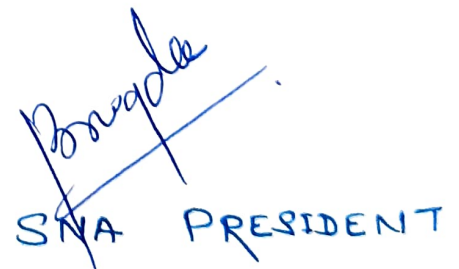 SNA PRESIDENT